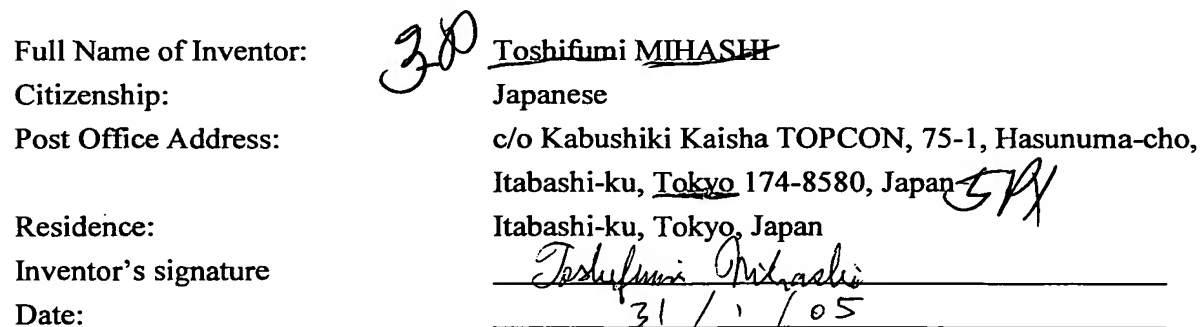 Full Name of Inventor: Toshifumi MIHASHI
Citizenship: Japanese
Post Office Address: c/o Kabushiki Kaisha TOPCON, 75-1, Hasunuma-cho,
Itabashi-ku, Tokyo 174-8580, Japan JPX
Residence: Itabashi-ku, Tokyo, Japan
Inventor's signature Toshifumi Mihashi
Date: 31 / 1 / 05